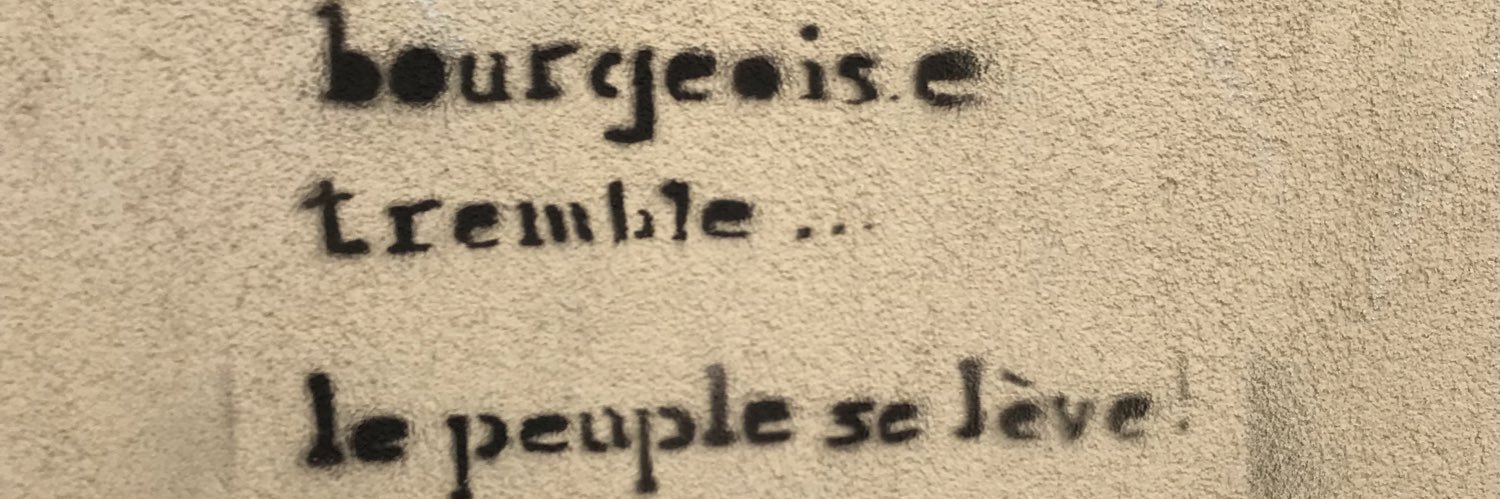 bourgeois.e
tremble...
le peuple se lève!